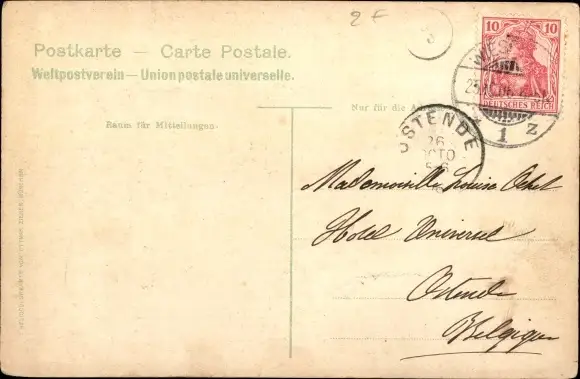 2 F
Postkarte — Carte Postale.
Weltpostverein — Union postale universelle.
10 10
DEUTSCHES REICH
Nur für die
Raum für Mitteilungen.
OSTENDE
26
OCTO
1 z
Mademoiselle Louise
Hotel Universel
Ostende
Belgique